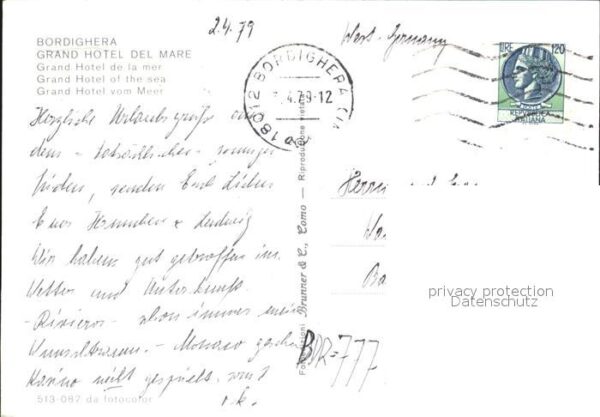 2.4.79
West-Germany
BORDIGHERA
GRAND HOTEL DEL MARE
Grand Hotel de la mer
Grand Hotel of the sea
Grand Hotel vom Meer
18012 BORDIGHERA (IM)
.4.79-12
LIRE 120
REPUBBLICA
ITALIANA
Herzliche Urlaubsgrüße aus
dem sonnigen
Süden, senden Euch Lieben
Eure & Ludwig
Wir haben gut getroffen im
Wetter und Unterkunft.
-Riviera- schon immer mein
Wunschtraum.- Monaco
Kasino nicht gespielt. sonst
o.k.
Herrn
Ba
privacy protection
Datenschutz
BDR=777
Fotoedizioni Brunner & C., Como — Riproduzione vietata
513-087 da fotocolor